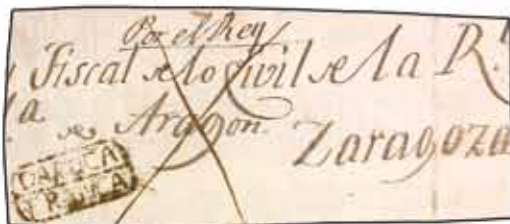 Por el Rey
Fiscal de lo Civil de la R.
a
de Aragon.
Zaragoza
DAROCA